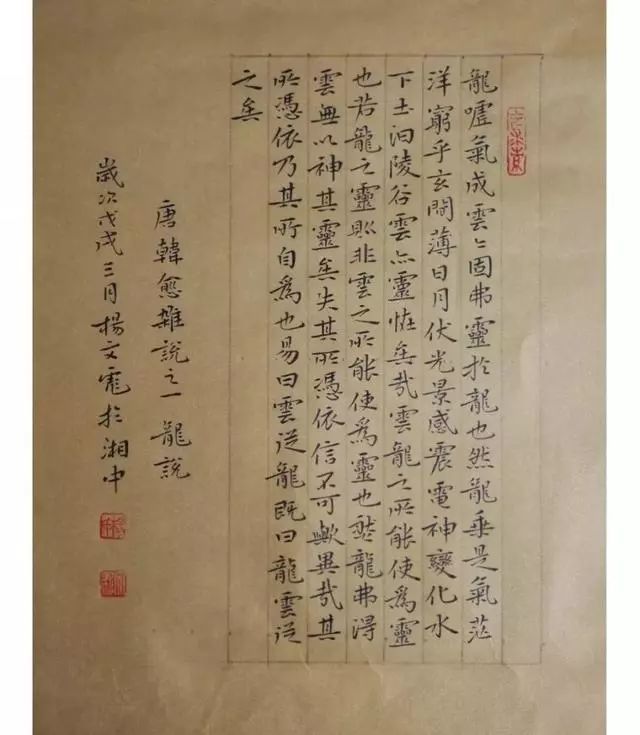 龍噓氣成雲〻固弗靈於龍也然龍乘是氣茫
洋窮乎玄間薄日月伏光景感震電神變化水
下土汩陵谷雲亦靈怪矣哉雲龍之所能使爲靈
也若龍之靈則非雲之所能使爲靈也然龍弗得
雲無以神其靈矣失其所憑依信不可歟異哉其
所憑依乃其所自爲也易曰雲從龍既曰龍雲從
之矣
唐韓愈雜說之一龍說
歲次戊戌三月楊文於湘中